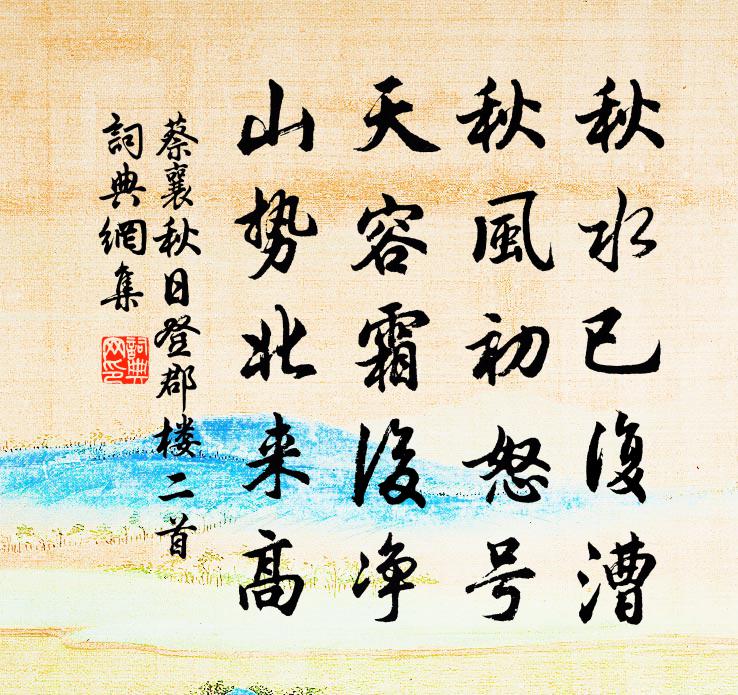 秋水已復漕
秋風初怒号
天容霜後净
山势北来高
蔡襄秋日登郡楼二首
詞典網集